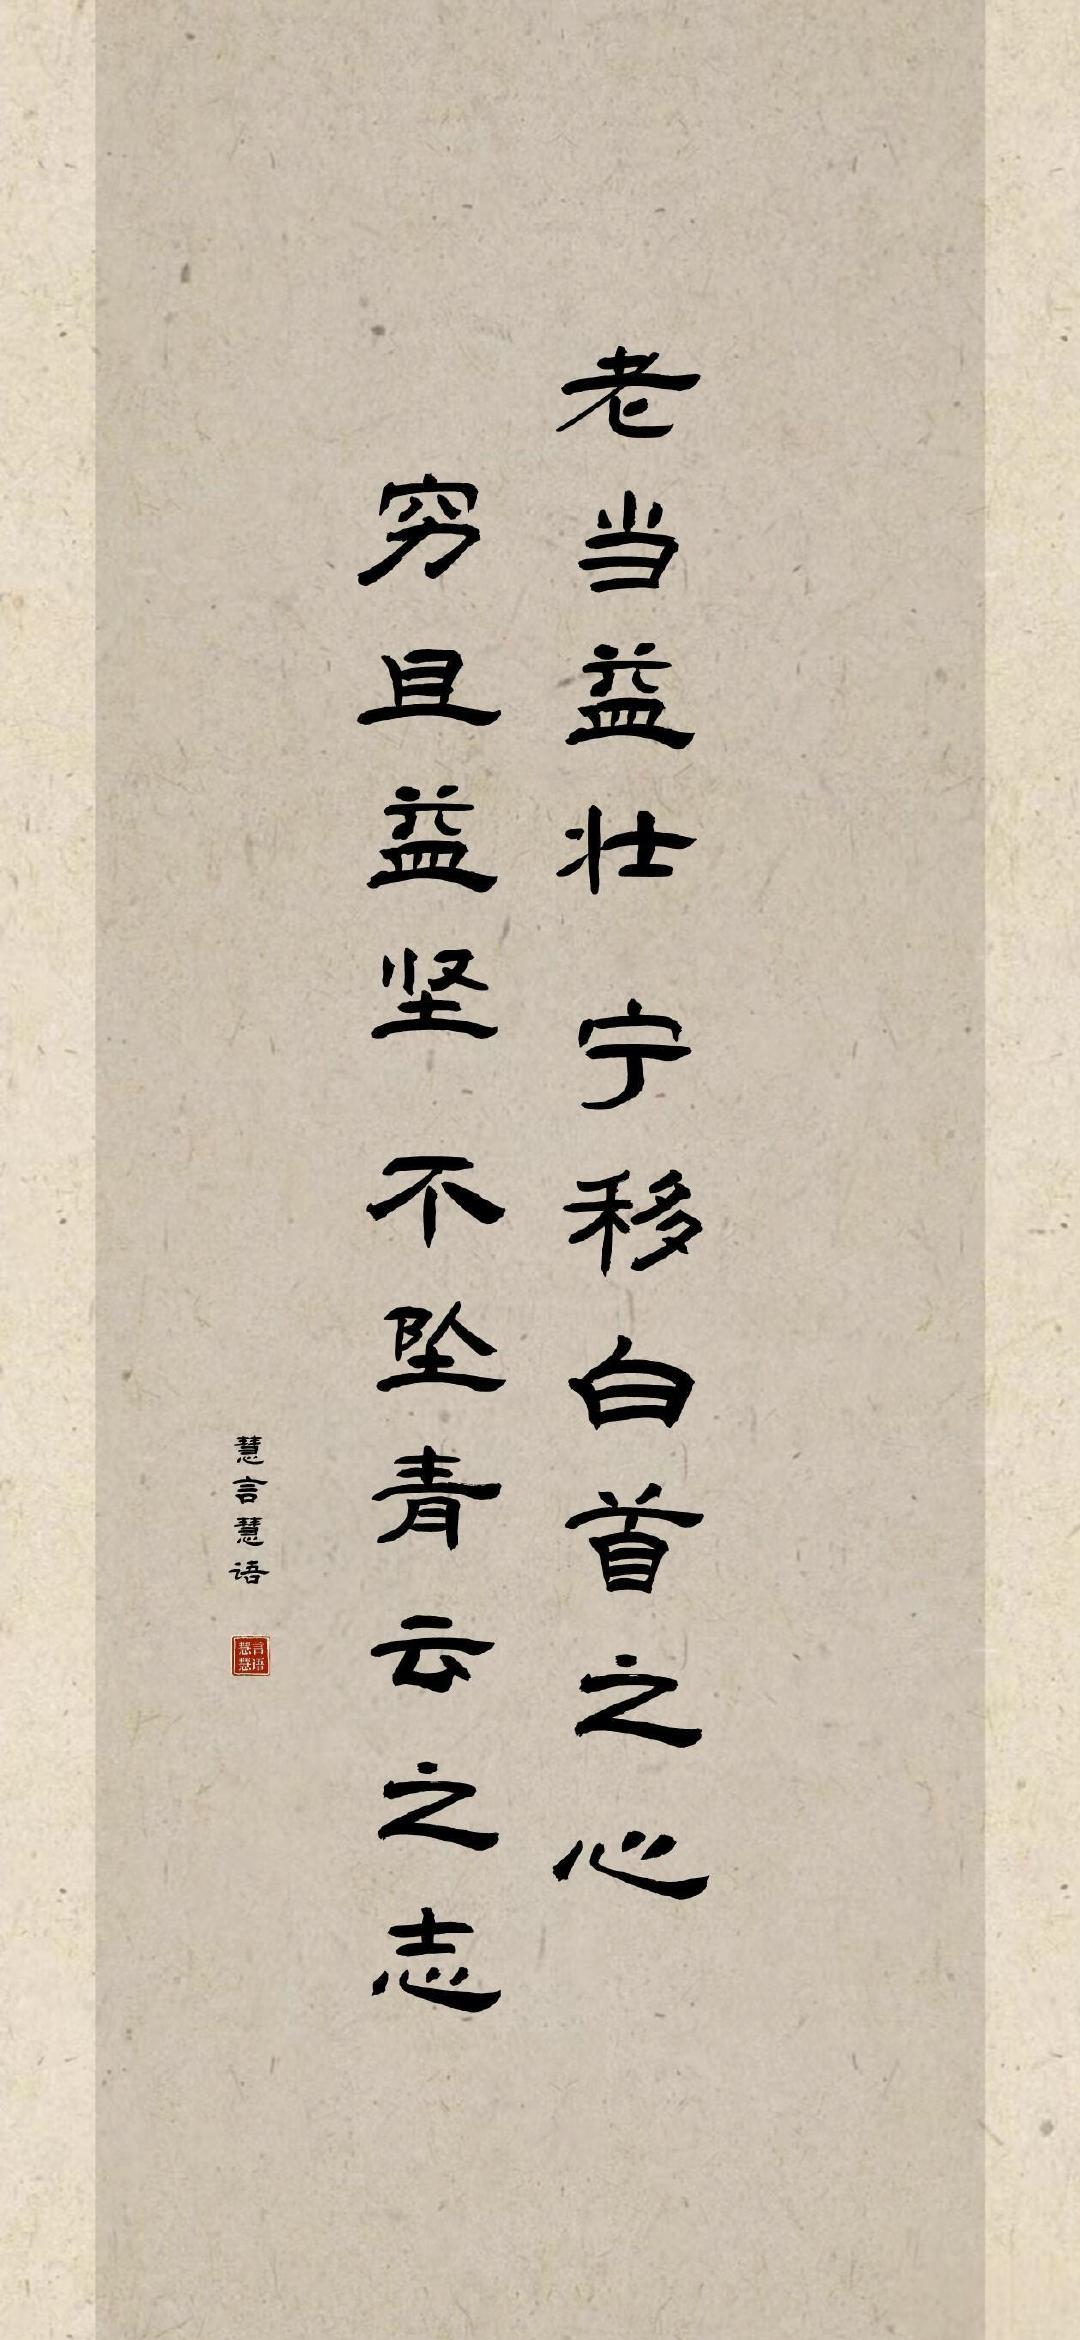 老当益壮 宁移白首之心
穷且益坚 不坠青云之志
慧言慧语
慧言慧语